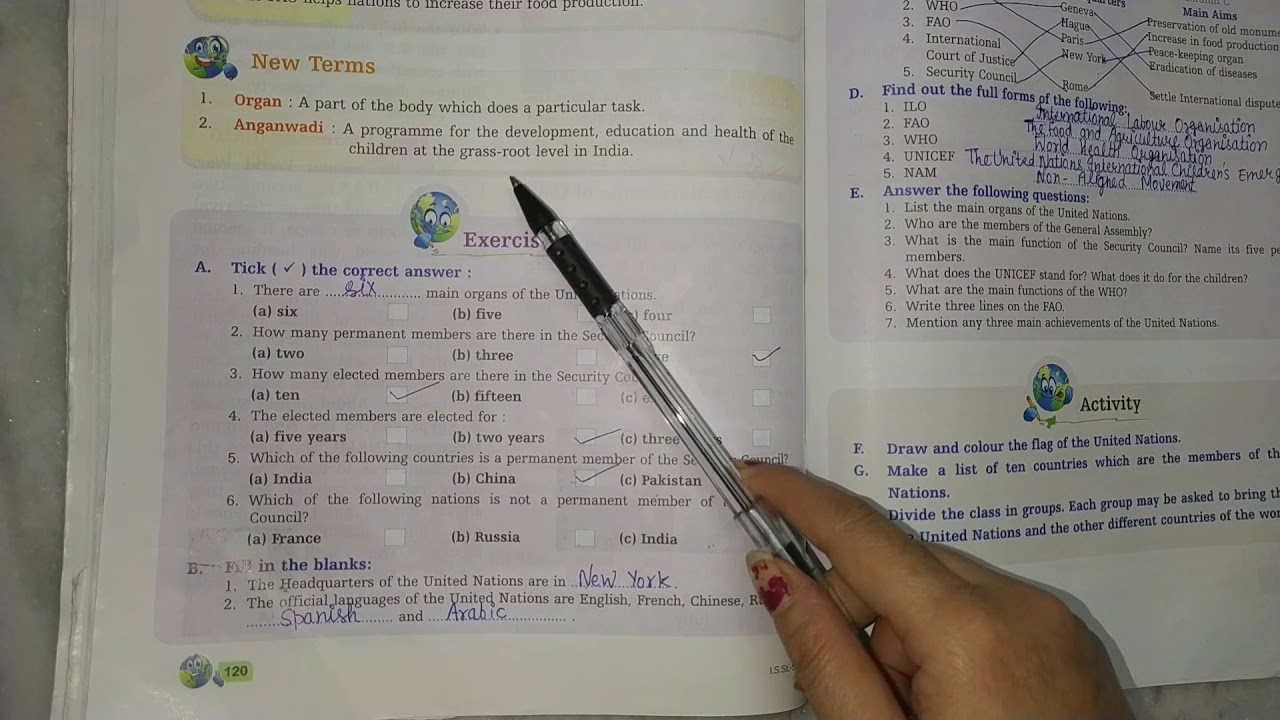 helps nations to increase their food production.
New Terms
1. Organ : A part of the body which does a particular task.
2. Anganwadi : A programme for the development, education and health of the
children at the grass-root level in India.
Exercis
A. Tick ( ✓ ) the correct answer :
1. There are ...six... main organs of the Un tions.
(a) six (b) five four
2. How many permanent members are there in the Sec ouncil?
(a) two (b) three ✓
3. How many elected members are there in the Security Co
(a) ten ✓ (b) fifteen (c) e
4. The elected members are elected for :
(a) five years (b) two years ✓ (c) three s
5. Which of the following countries is a permanent member of the Se Council?
(a) India (b) China ✓ (c) Pakistan
6. Which of the following nations is not a permanent member of
Council?
(a) France (b) Russia (c) India
B. Fill in the blanks:
1. The Headquarters of the United Nations are in ..New York.
2. The official languages of the United Nations are English, French, Chinese, R
......Spanish...... and ...Arabic............ .
120
I.S.St-5
Main Aims
2. WHO Geneva Preservation of old monume
3. FAO Hague Increase in food production
4. International Paris Peace-keeping organ
Court of Justice New York Eradication of diseases
5. Security Council Rome Settle International dispute
D. Find out the full forms of the following:
1. ILO International Labour Organisation
2. FAO The Food and Agriculture Organisation
3. WHO World Health Organisation
4. UNICEF The United Nations International Children's Emerg
5. NAM Non-Aligned Movement
E. Answer the following questions:
1. List the main organs of the United Nations.
2. Who are the members of the General Assembly?
3. What is the main function of the Security Council? Name its five pe
members.
4. What does the UNICEF stand for? What does it do for the children?
5. What are the main functions of the WHO?
6. Write three lines on the FAO.
7. Mention any three main achievements of the United Nations.
Activity
F. Draw and colour the flag of the United Nations.
G. Make a list of ten countries which are the members of th
Nations.
Divide the class in groups. Each group may be asked to bring th
United Nations and the other different countries of the wor